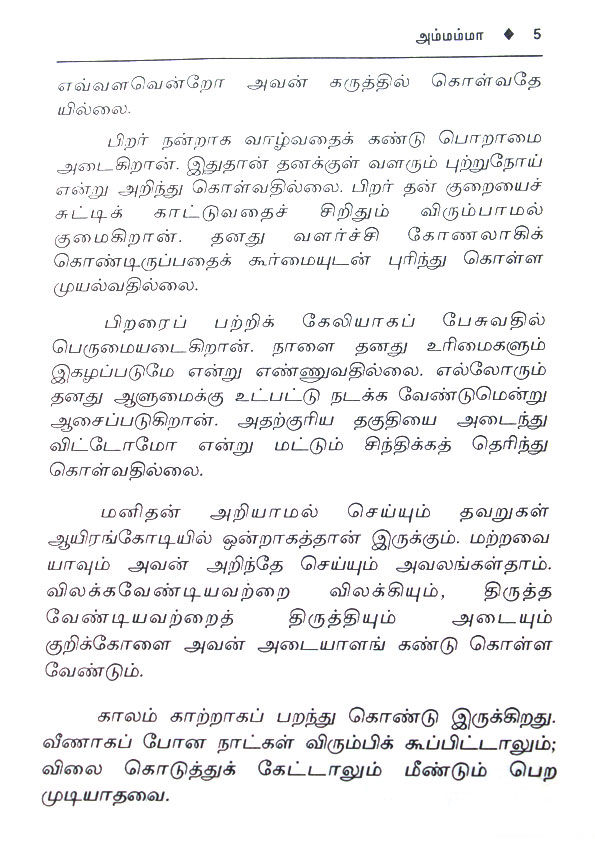 அம்மம்மா ◆ 5
எவ்வளவென்றோ அவன் கருத்தில் கொள்வதே
யில்லை.
பிறர் நன்றாக வாழ்வதைக் கண்டு பொறாமை
அடைகிறான். இதுதான் தனக்குள் வளரும் புற்றுநோய்
என்று அறிந்து கொள்வதில்லை. பிறர் தன் குறையைச்
சுட்டிக் காட்டுவதைச் சிறிதும் விரும்பாமல்
குமைகிறான். தனது வளர்ச்சி கோணலாகிக்
கொண்டிருப்பதைக் கூர்மையுடன் புரிந்து கொள்ள
முயல்வதில்லை.
பிறரைப் பற்றிக் கேலியாகப் பேசுவதில்
பெருமையடைகிறான். நாளை தனது உரிமைகளும்
இகழப்படுமே என்று எண்ணுவதில்லை. எல்லோரும்
தனது ஆளுமைக்கு உட்பட்டு நடக்க வேண்டுமென்று
ஆசைப்படுகிறான். அதற்குரிய தகுதியை அடைந்து
விட்டோமோ என்று மட்டும் சிந்திக்கத் தெரிந்து
கொள்வதில்லை.
மனிதன் அறியாமல் செய்யும் தவறுகள்
ஆயிரங்கோடியில் ஒன்றாகத்தான் இருக்கும். மற்றவை
யாவும் அவன் அறிந்தே செய்யும் அவலங்கள்தாம்.
விலக்கவேண்டியவற்றை விலக்கியும், திருத்த
வேண்டியவற்றைத் திருத்தியும் அடையும்
குறிக்கோளை அவன் அடையாளங் கண்டு கொள்ள
வேண்டும்.
காலம் காற்றாகப் பறந்து கொண்டு இருக்கிறது.
வீணாகப் போன நாட்கள் விரும்பிக் கூப்பிட்டாலும்;
விலை கொடுத்துக் கேட்டாலும் மீண்டும் பெற
முடியாதவை.